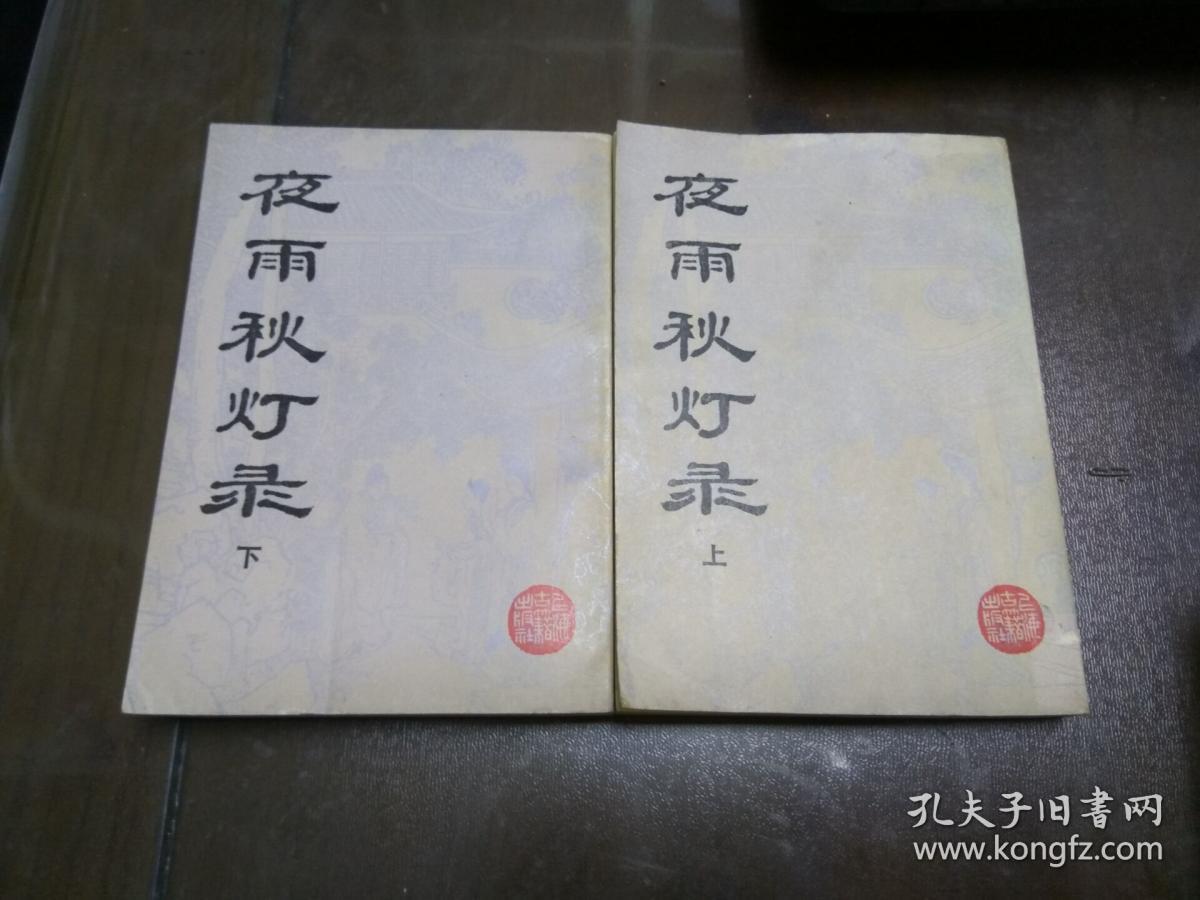 夜雨秋灯录
下
上海
古籍
出版社
夜雨秋灯录
上
上海
古籍
出版社
孔夫子旧书网
www.kongfz.com